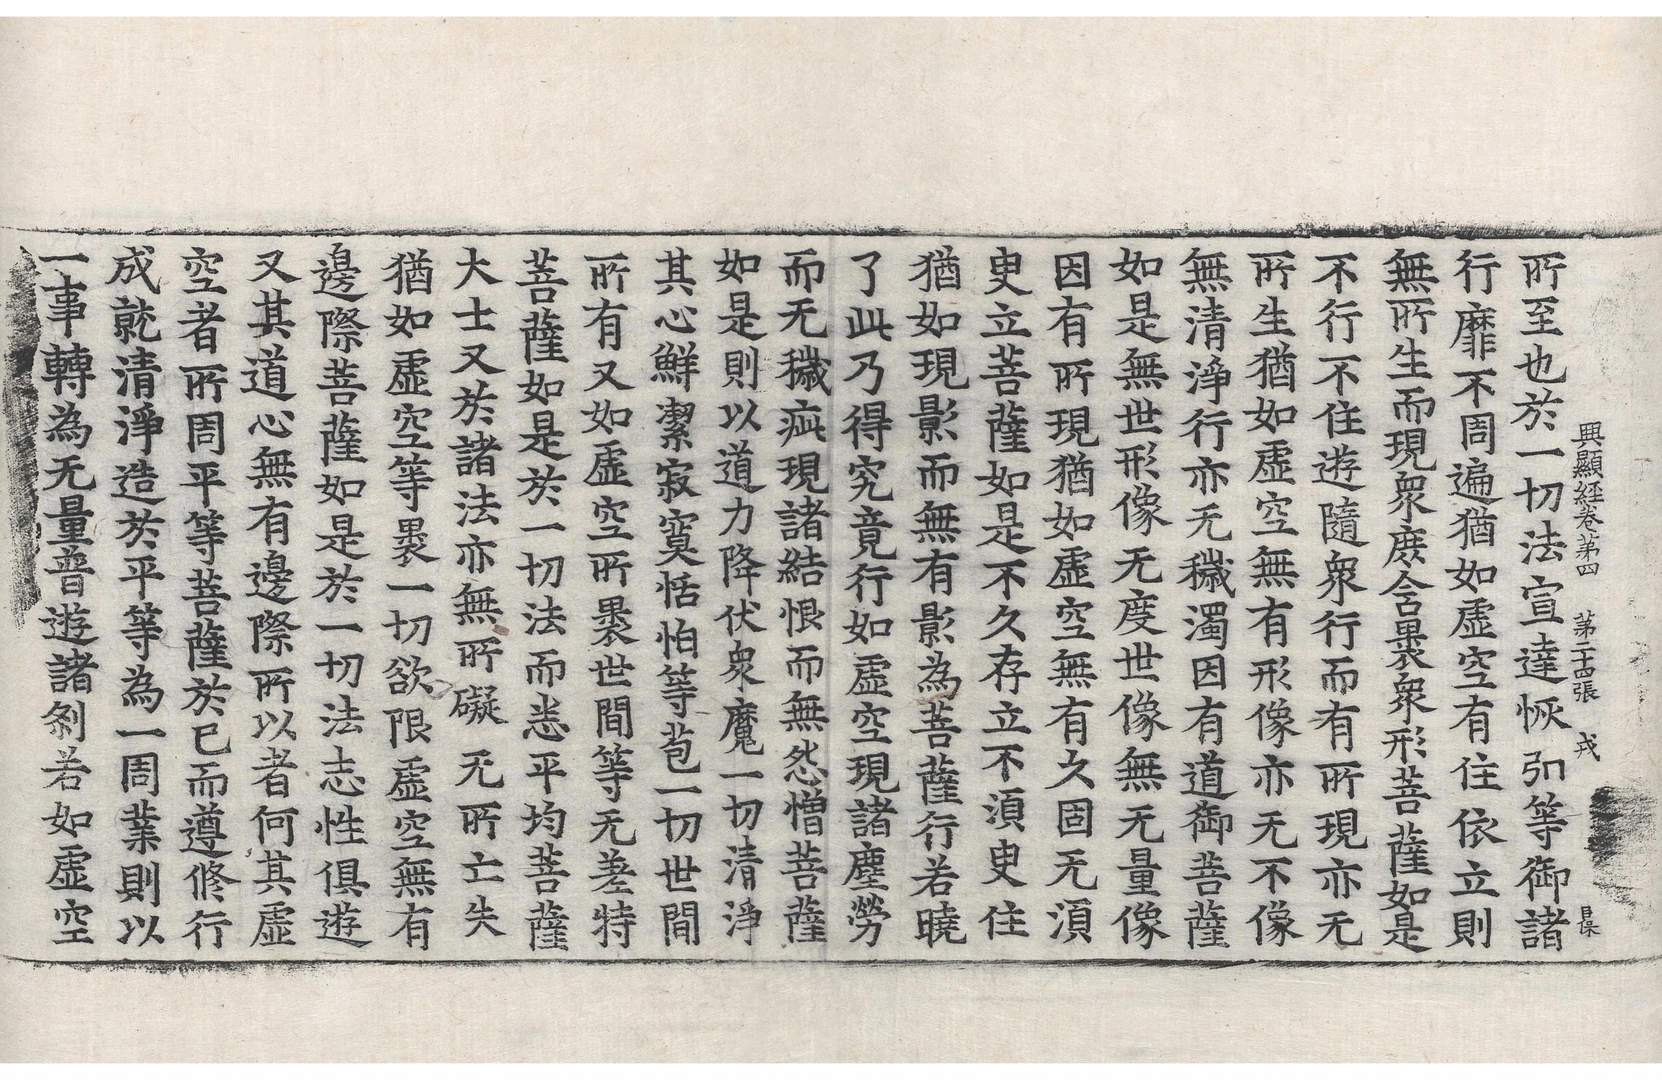 興顯經卷第四 第二十四張 戎
所至也於一切法宣達恢弘等御諸
行靡不周遍猶如虛空有住依立則
無所生而現衆庶含褁衆形菩薩如是
不行不住遊隨衆行而有所現亦无
所生猶如虛空無有形像亦无不像
無清淨行亦无穢濁因有道御菩薩
如是無世形像无度世像無无量像
因有所現猶如虛空無有久固无湏
臾立菩薩如是不久存立不湏臾住
猶如現影而無有影為菩薩行若曉
了此乃得究竟行如虛空現諸塵勞
而无穢疵現諸結恨而無怨憎菩薩
如是則以道力降伏衆魔一切清淨
其心鮮潔寂寞恬怕等苞一切世間
所有又如虛空所褁世間等无差特
菩薩如是於一切法而悉平均菩薩
大士又於諸法亦無所礙无所亡失
猶如虛空等褁一切欲限虛空無有
邊際菩薩如是於一切法志性俱遊
又其道心無有邊際所以者何其虛
空者所周平等菩薩於已而遵修行
成就清淨造於平等為一周業則以
一事轉為无量普遊諸刹若如虛空